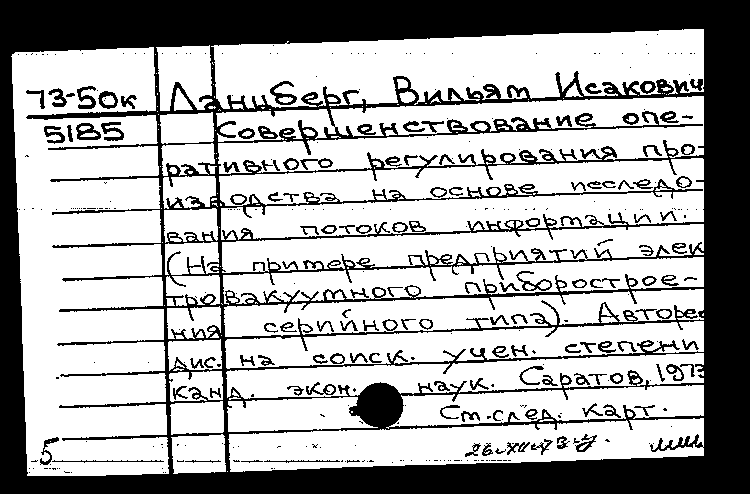 73-50к Ланцберг, Вильям Исакович
5185 Совершенствование опе-
ративного регулирования про-
изводства на основе исследо-
вания потоков информации.
(На примере предприятий элек
тровакуумного приборострое-
ния серийного типа). Авторе
дис. на соиск. учен. степени
канд. экон. наук. Саратов, 1973
См. след. карт.
5